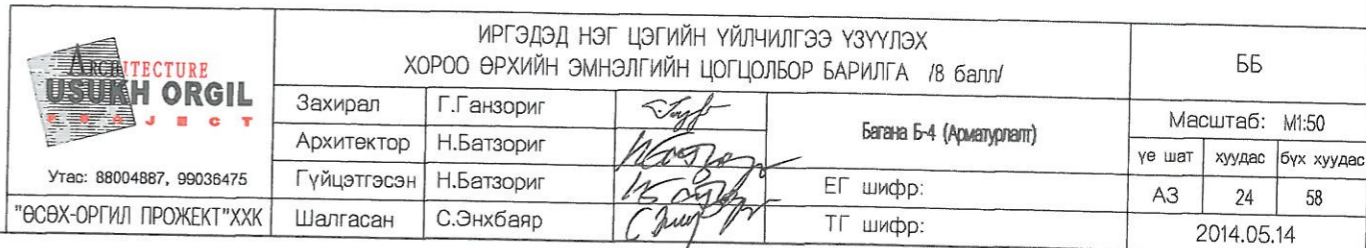 ARCHITECTURE
USUKH ORGIL
Утас: 88004887, 99036475
"ӨСӨХ-ОРГИЛ ПРОЖЕКТ"ХХК
ИРГЭДЭД НЭГ ЦЭГИЙН ҮЙЛЧИЛГЭЭ ҮЗҮҮЛЭХ
ХОРОО ӨРХИЙН ЭМНЭЛГИЙН ЦОГЦОЛБОР БАРИЛГА /8 балл/
Захирал Г.Ганзориг
Архитектор Н.Батзориг
Гүйцэтгэсэн Н.Батзориг
Шалгасан С.Энхбаяр
Багана Б-4 (Арматурлалт)
ЕГ шифр:
ТГ шифр:
ББ
Масштаб: М1:50
үе шат хуудас бүх хуудас
А3 24 58
2014.05.14